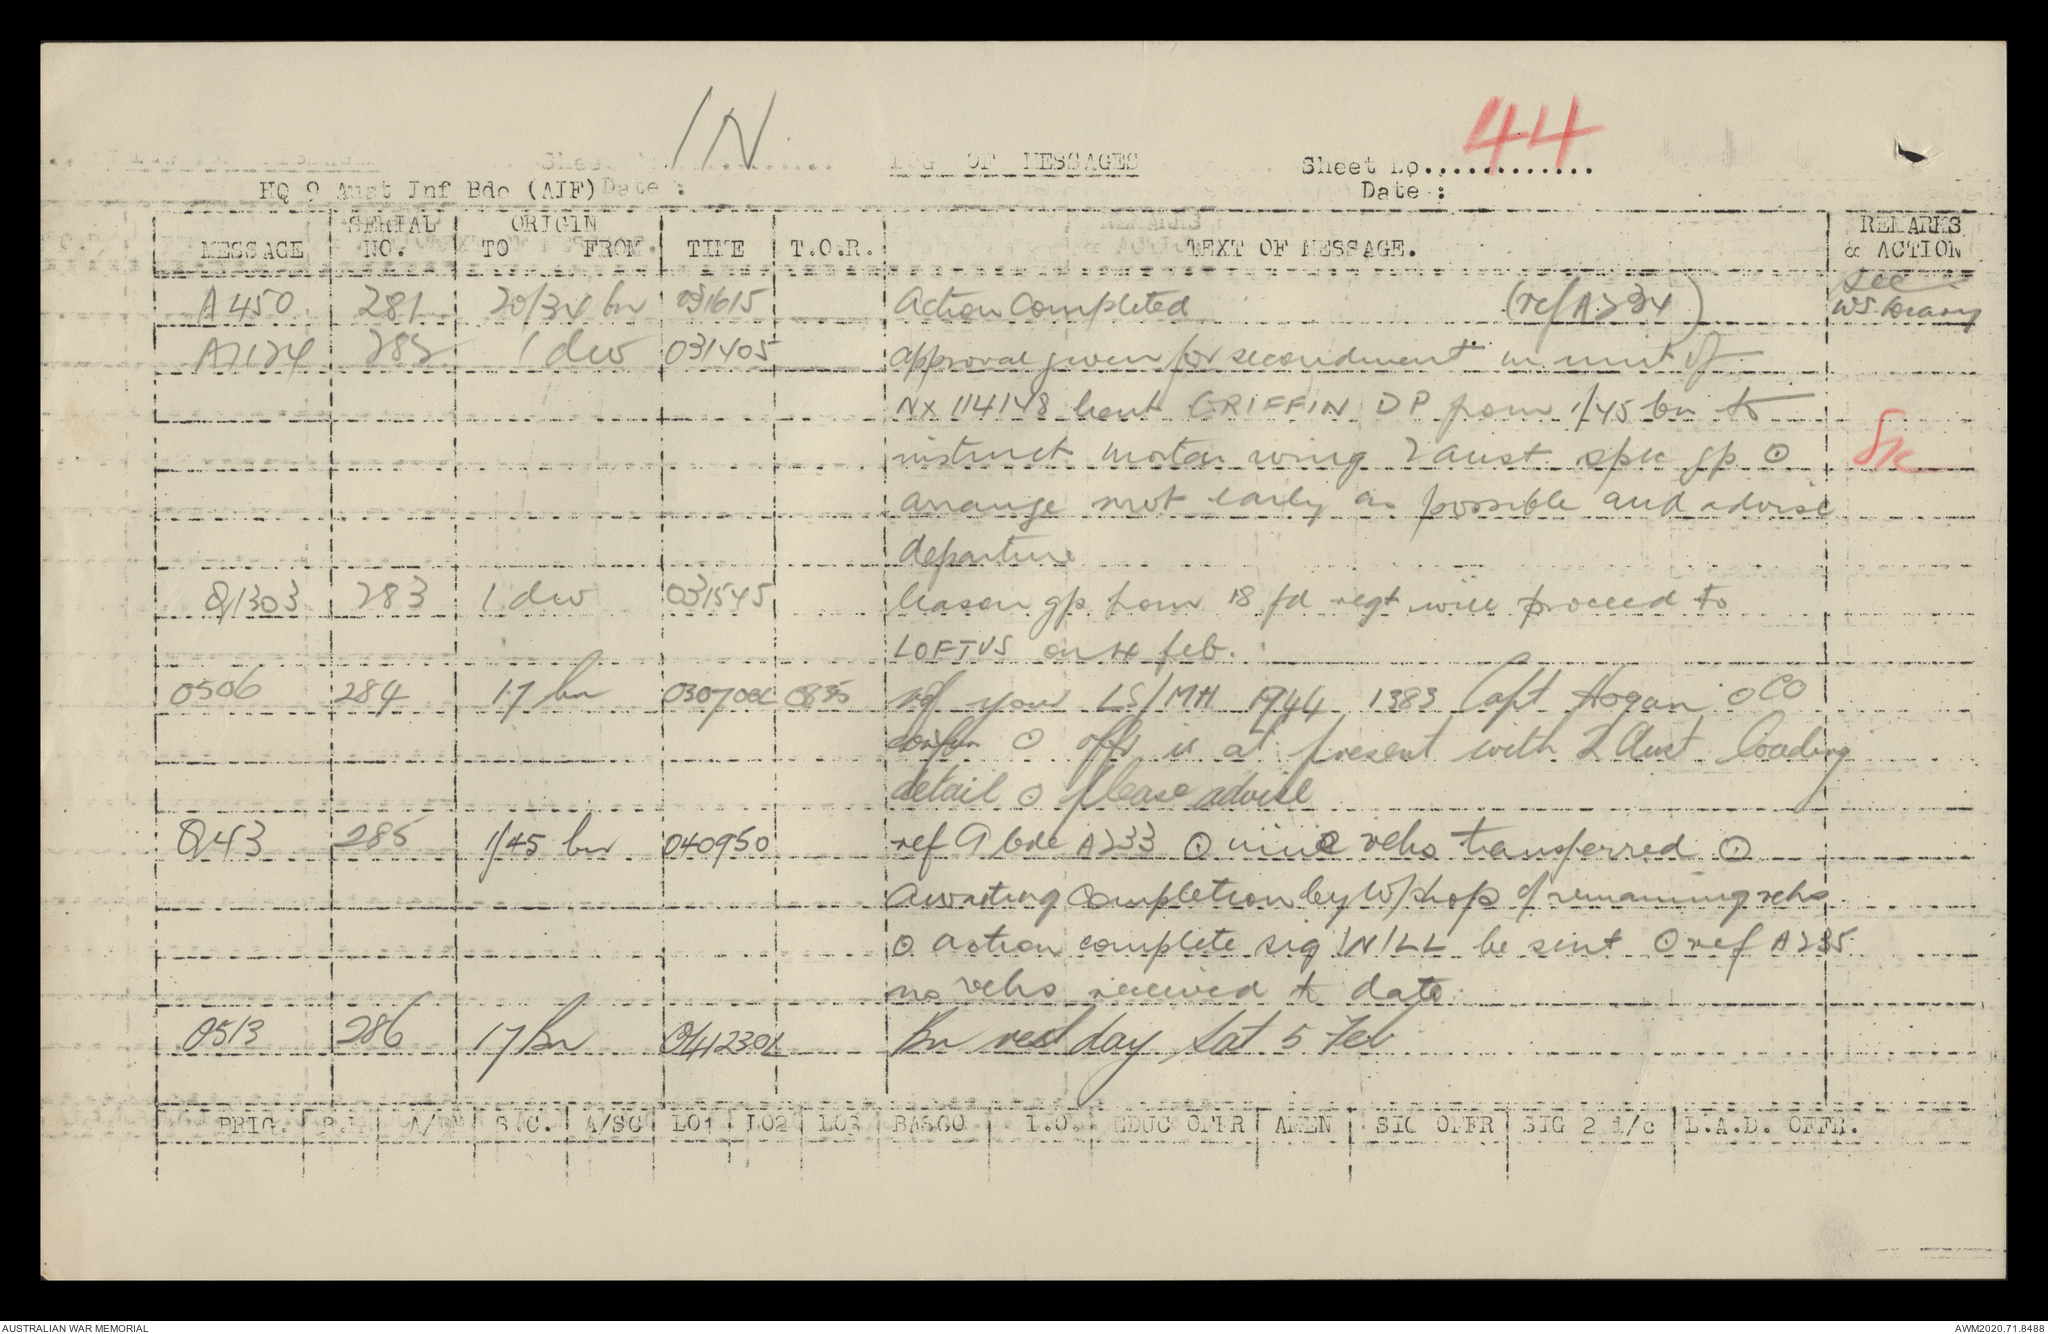 IN
LOG OF MESSAGES
Sheet No............. 44
HQ 9 Aust Inf Bde (AIF) Date :
Date :
MESSAGE SERIAL NO. ORIGIN TO FROM TIME T.O.R. TEXT OF MESSAGE. REMARKS & ACTION
A450 281 20/34 bn 031615 Action Completed (ref A234) See WS
A7124 282 1 div 031405 approval given for secondment in unit of
NX 114148 Lieut GRIFFIN DP from 1/45 bn to
instruct mortar wing 2 aust spec gp ⊙
arrange mvt early as possible and advise
departure
Q1303 283 1 div 031545 liason gp from 18 fd regt will proceed to
LOFTUS on 4 feb.
O506 284 17 bn 030700L 0835 ref your LS/MH 1944 1383 Capt Hogan O CO
⊙ offr is at present with 2 Aust loading
detail ⊙ please advise
Q43 285 1/45 bn 040950 ref 9 bde A233 ⊙ nine vehs transferred ⊙
Awaiting completion by W/shops of remaining vehs
⊙ action complete sig WILL be sent ⊙ ref A235
no vehs received to date
O513 286 17 Bn 041230L Bn rest day Sat 5 Feb
BRIG. B.M. A/ S.C. A/SC LO1 LO2 LO3 BASGO I.O. EDUC OFFR AMEN SIG OFFR SIG 2 i/c L.A.D. OFFR.
AUSTRALIAN WAR MEMORIAL
AWM2020.71.8488